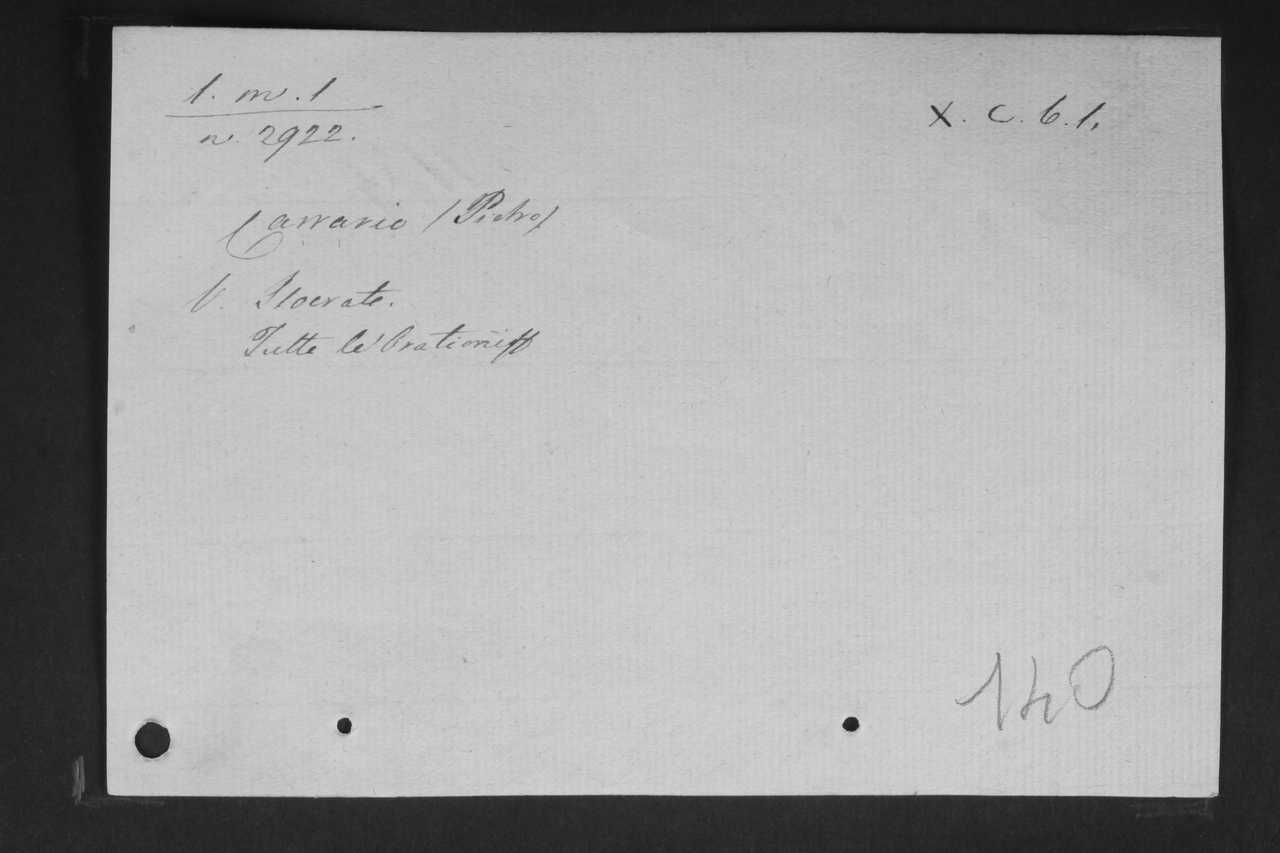 1. m. 1
n. 2922.
X. C. b. 1.
Carrario (Pietro)
V. Isocrate.
Tutte le Orationi
140